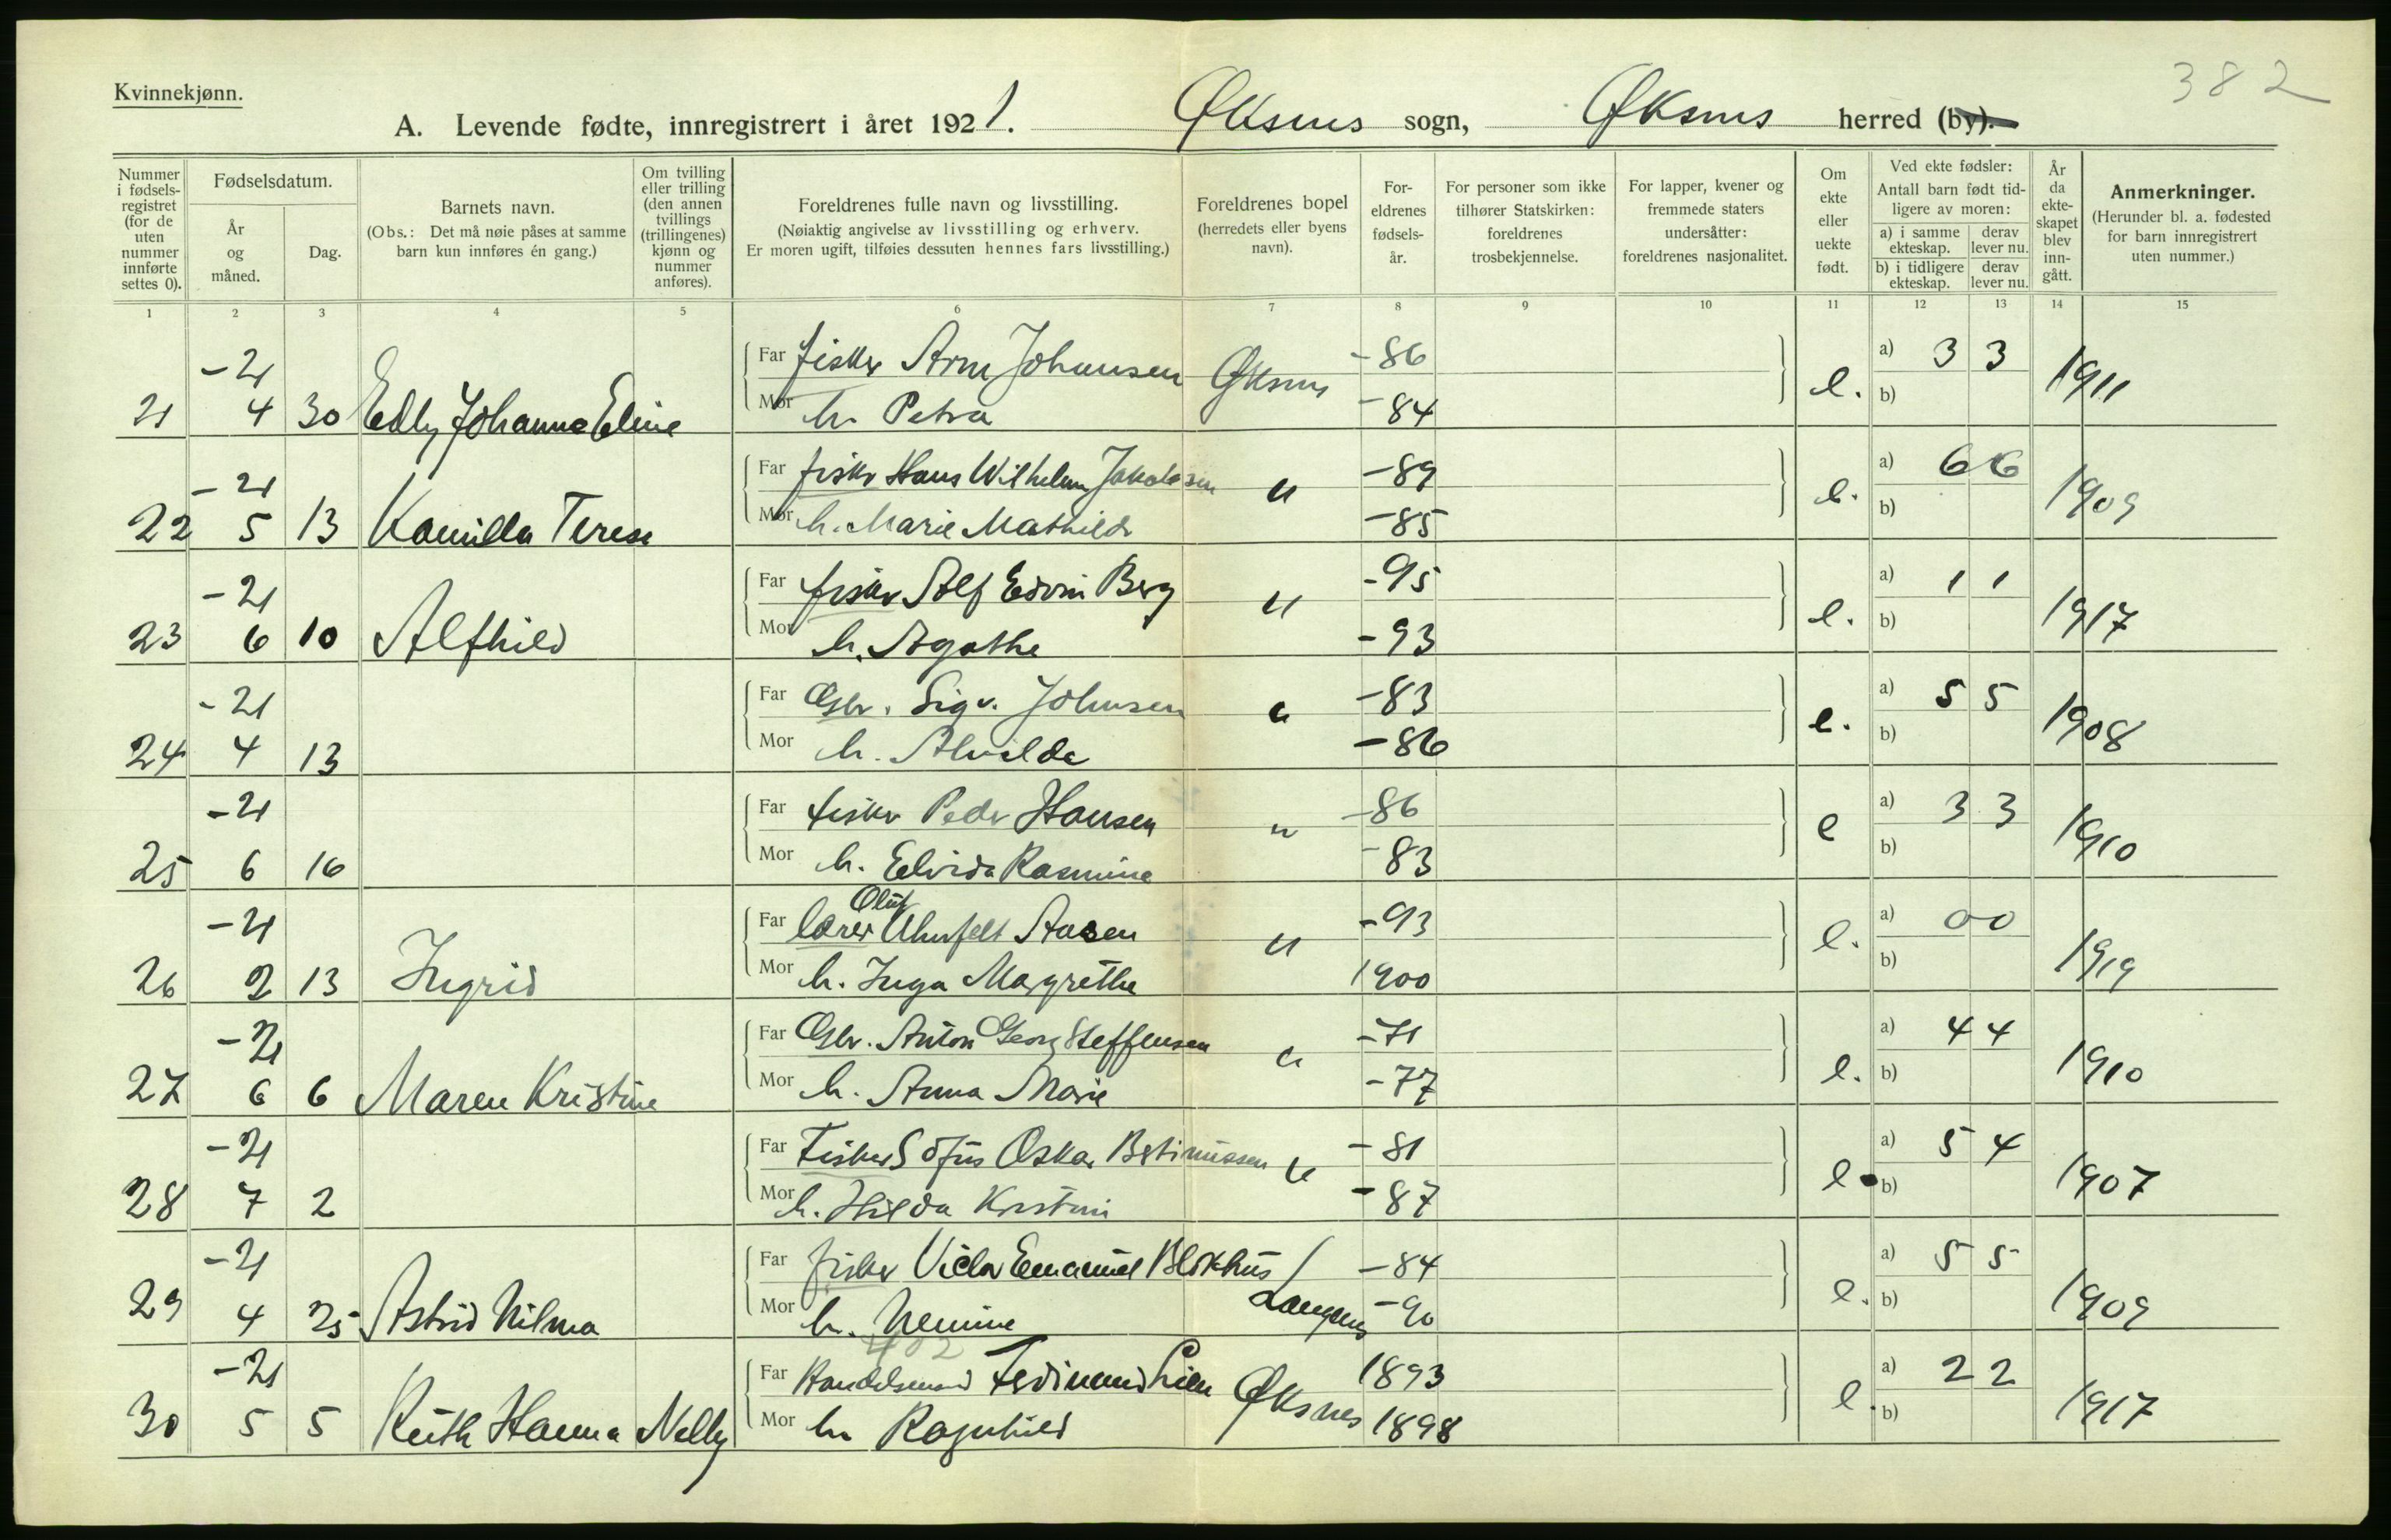 382
Kvinnekjønn.
A. Levende fødte, innregistrert i året 1921. Øksnes sogn, Øksnes herred (by).
Nummer i fødsels-registret (for de uten nummer innførte settes 0).
Fødselsdatum.
År og måned.
Dag.
Barnets navn.
(Obs.: Det må nøie påses at samme barn kun innføres én gang.)
Om tvilling eller trilling (den annen tvillings (trillingenes) kjønn og nummer anføres).
Foreldrenes fulle navn og livsstilling.
(Nøiaktig angivelse av livsstilling og erhverv.
Er moren ugift, tilføies dessuten hennes fars livsstilling.)
Foreldrenes bopel
(herredets eller byens navn).
For-eldrenes fødsels-år.
For personer som ikke tilhører Statskirken: foreldrenes trosbekjennelse.
For lapper, kvener og fremmede staters undersåtter: foreldrenes nasjonalitet.
Om ekte eller uekte født.
Ved ekte fødsler:
Antall barn født tid-ligere av moren:
a) i samme ekteskap. derav lever nu.
b) i tidligere ekteskap. derav lever nu.
År da ekte-skapet blev inn-gått.
Anmerkninger.
(Herunder bl. a. fødested for barn innregistrert uten nummer.)
1 2 3 4 5 6 7 8 9 10 11 12 13 14 15
-21 Far fisker Arne Johansen Øksnes -86 a) 3 3
21 4 30 Edly Johanne Eline Mor h. Petra -84 e. b) 1911
-21 Far fisker Hans Wilhelm Jakobsen " -89 a) 6 6
22 5 13 Kamilla Terese Mor h. Marie Mathilde -85 e. b) 1909
-21 Far fisker Alf Edvin Berg " -95 a) 1 1
23 6 10 Alfhild Mor h. Agathe -93 e. b) 1917
-21 Far Gbr. Sigv. Johnsen " -83 a) 5 5
24 4 13 Mor h. Alvilde -86 e. b) 1908
-21 Far fisker Peder Hansen " -86 a) 3 3
25 6 16 Mor h. Edvida Rasmine -83 e b) 1910
Oluf
-21 Far lærer Aasen " -93 a) 0 0
26 2 13 Ingrid Mor h. Inga Margrethe 1900 e. b) 1919
-21 Far Gbr. Anton Georg Steffensen " -71 a) 4 4
27 6 6 Maren Kristine Mor h. Anna Marie -77 e. b) 1910
-21 Far Fisker Sofus Oskar Bertinussen " -81 a) 5 4
28 7 2 Mor h. Hilda Kristine -87 e. b) 1907
-21 Far fisker Victor Emanuel Blokhus / -84 a) 5 5
29 4 25 Astrid Hilma Mor h. Nemine Langenes -90 e. b) 1909
402
-21 Far Handelsmand Ferdinand Lien Øksnes 1893 a) 2 2
30 5 5 Ruth Hanna Nelly Mor h. Ragnhild 1898 e. b) 1917